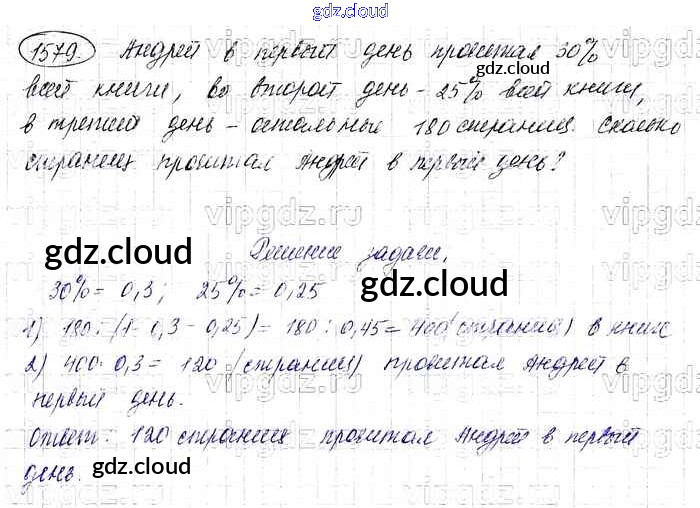 gdz.cloud
1579. Андрей в первый день прочитал 30%
всей книги, во второй день - 25% всей книги,
в третий день - остальные 180 страниц. Сколько
страниц прочитал Андрей в первый день?
Решение задачи.
30% = 0,3; 25% = 0,25
1) 180 : (1 - 0,3 - 0,25) = 180 : 0,45 = 400 (страниц) в книге
2) 400 · 0,3 = 120 (страниц) прочитал Андрей в
первый день.
Ответ: 120 страниц прочитал Андрей в первый
день.
gdz.cloud
gdz.cloud
gdz.cloud
gdz.cloud
gdz.cloud
gdz.cloud
gdz.cloud
vipgdz.ru
vipgdz.ru
vipgdz.ru